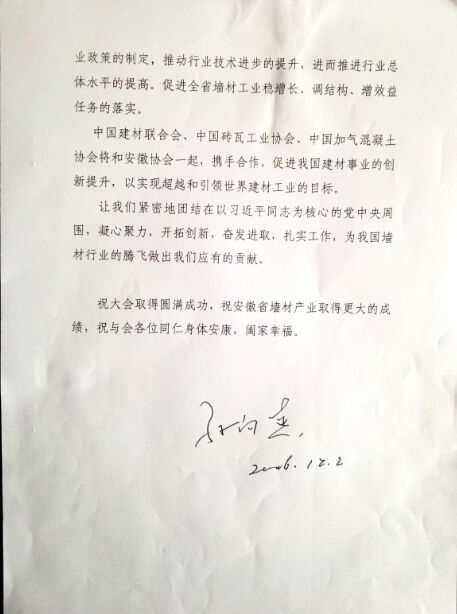 业政策的制定，推动行业技术进步的提升，进而推进行业总
体水平的提高。促进全省墙材工业稳增长、调结构、增效益
任务的落实。
中国建材联合会、中国砖瓦工业协会、中国加气混凝土
协会将和安徽协会一起，携手合作，促进我国建材事业的创
新提升，以实现超越和引领世界建材工业的目标。
让我们紧密地团结在以习近平同志为核心的党中央周
围，凝心聚力，开拓创新，奋发进取，扎实工作，为我国墙
材行业的腾飞做出我们应有的贡献。
祝大会取得圆满成功，祝安徽省墙材产业取得更大的成
绩，祝与会各位同仁身体安康，阖家幸福。
12.2